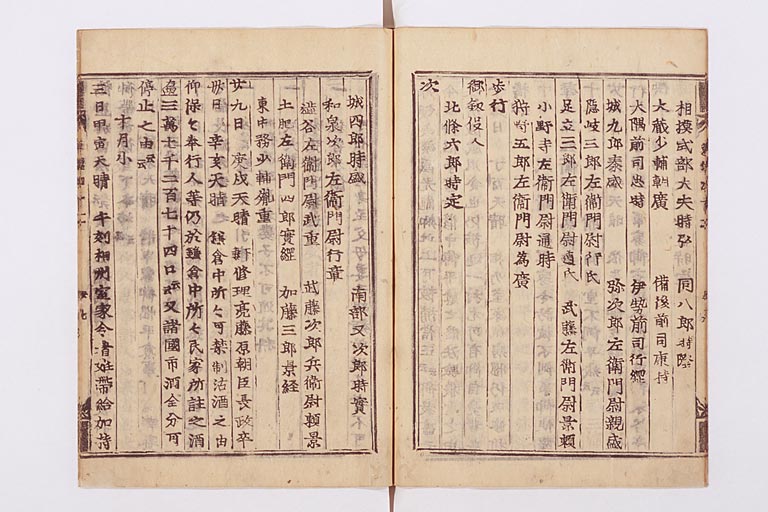 相摸式部大夫時弘 同八郎時隆
大蔵少輔朝廣 備後前司康持
大隅前司忠時 伊勢前司行經
城九郎泰盛 弥次郎左衛門尉親盛
隠岐三郎左衛門尉行氏
足立三郎左衛門尉 武藤左衛門尉景頼
小野寺左衛門尉通時
狩野五郎左衛門尉為廣
歩行
御釼役人
北條六郎時定
次
城四郎時盛 南部又次郎時實
和泉次郎左衛門尉行章
澁谷左衛門尉武重 武藤次郎兵衛尉頼景
土肥左衛門四郎實經 加藤三郎景經
東中務少輔胤重
廿九日 庚戌天晴 修理亮藤原朝臣長政卒
卅日 辛亥天晴 鎌倉中所々可禁制沽酒之由
仰保々奉行人等仍於鎌倉中所々民家所註之酒
壺三萬七千二百七十四口云々又諸國市酒全分可
停止之由云々
十月小
三日甲寅天晴 午刻相州室家令着妊帶給加持